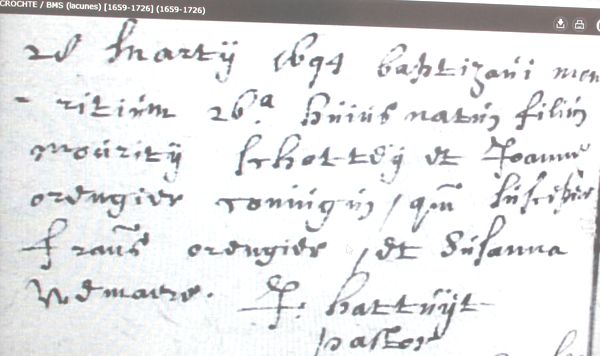 CROCHTE / BMS (lacunes) [1659-1726] (1659-1726)
28 Martij 1694 baptizavi mau
- ritium 26.ª huius natum filiũ
mauritij schottey et Joannæ
orengier coniugũ, quẽ susceper
Franc̃s orengier, et Susanna
Wemaere. F. hattuyt
pastor